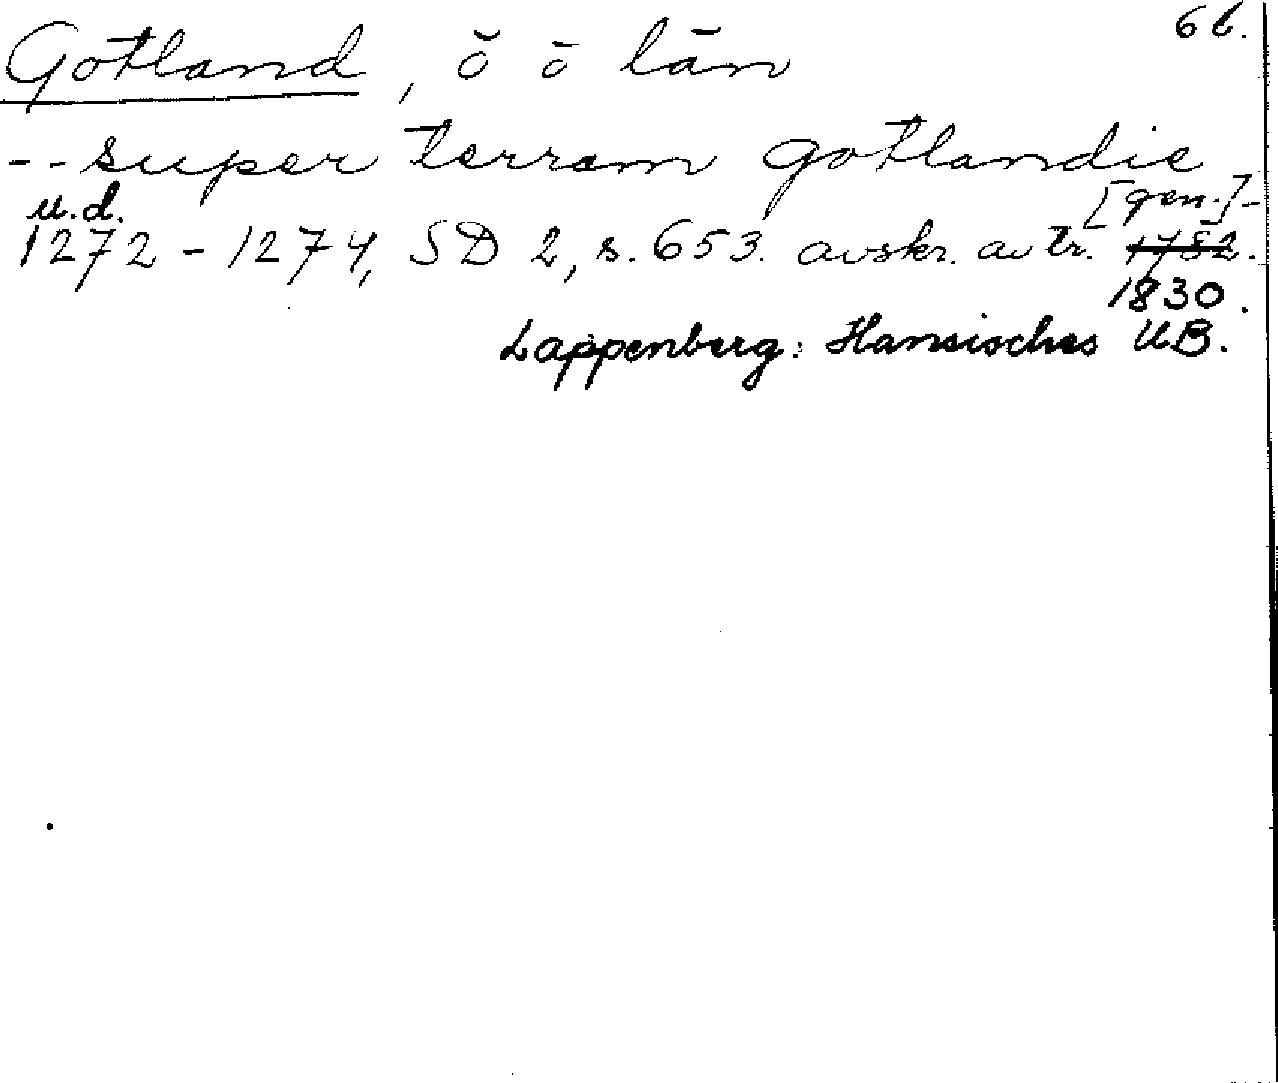 66.
Gotland, ö ö län
--super terram gotlandie
[gen.]-
u.d.
1272-1274, SD 2, s. 653. avskr. av tr. 1782.
1830.
Lappenberg: Hansisches UB.